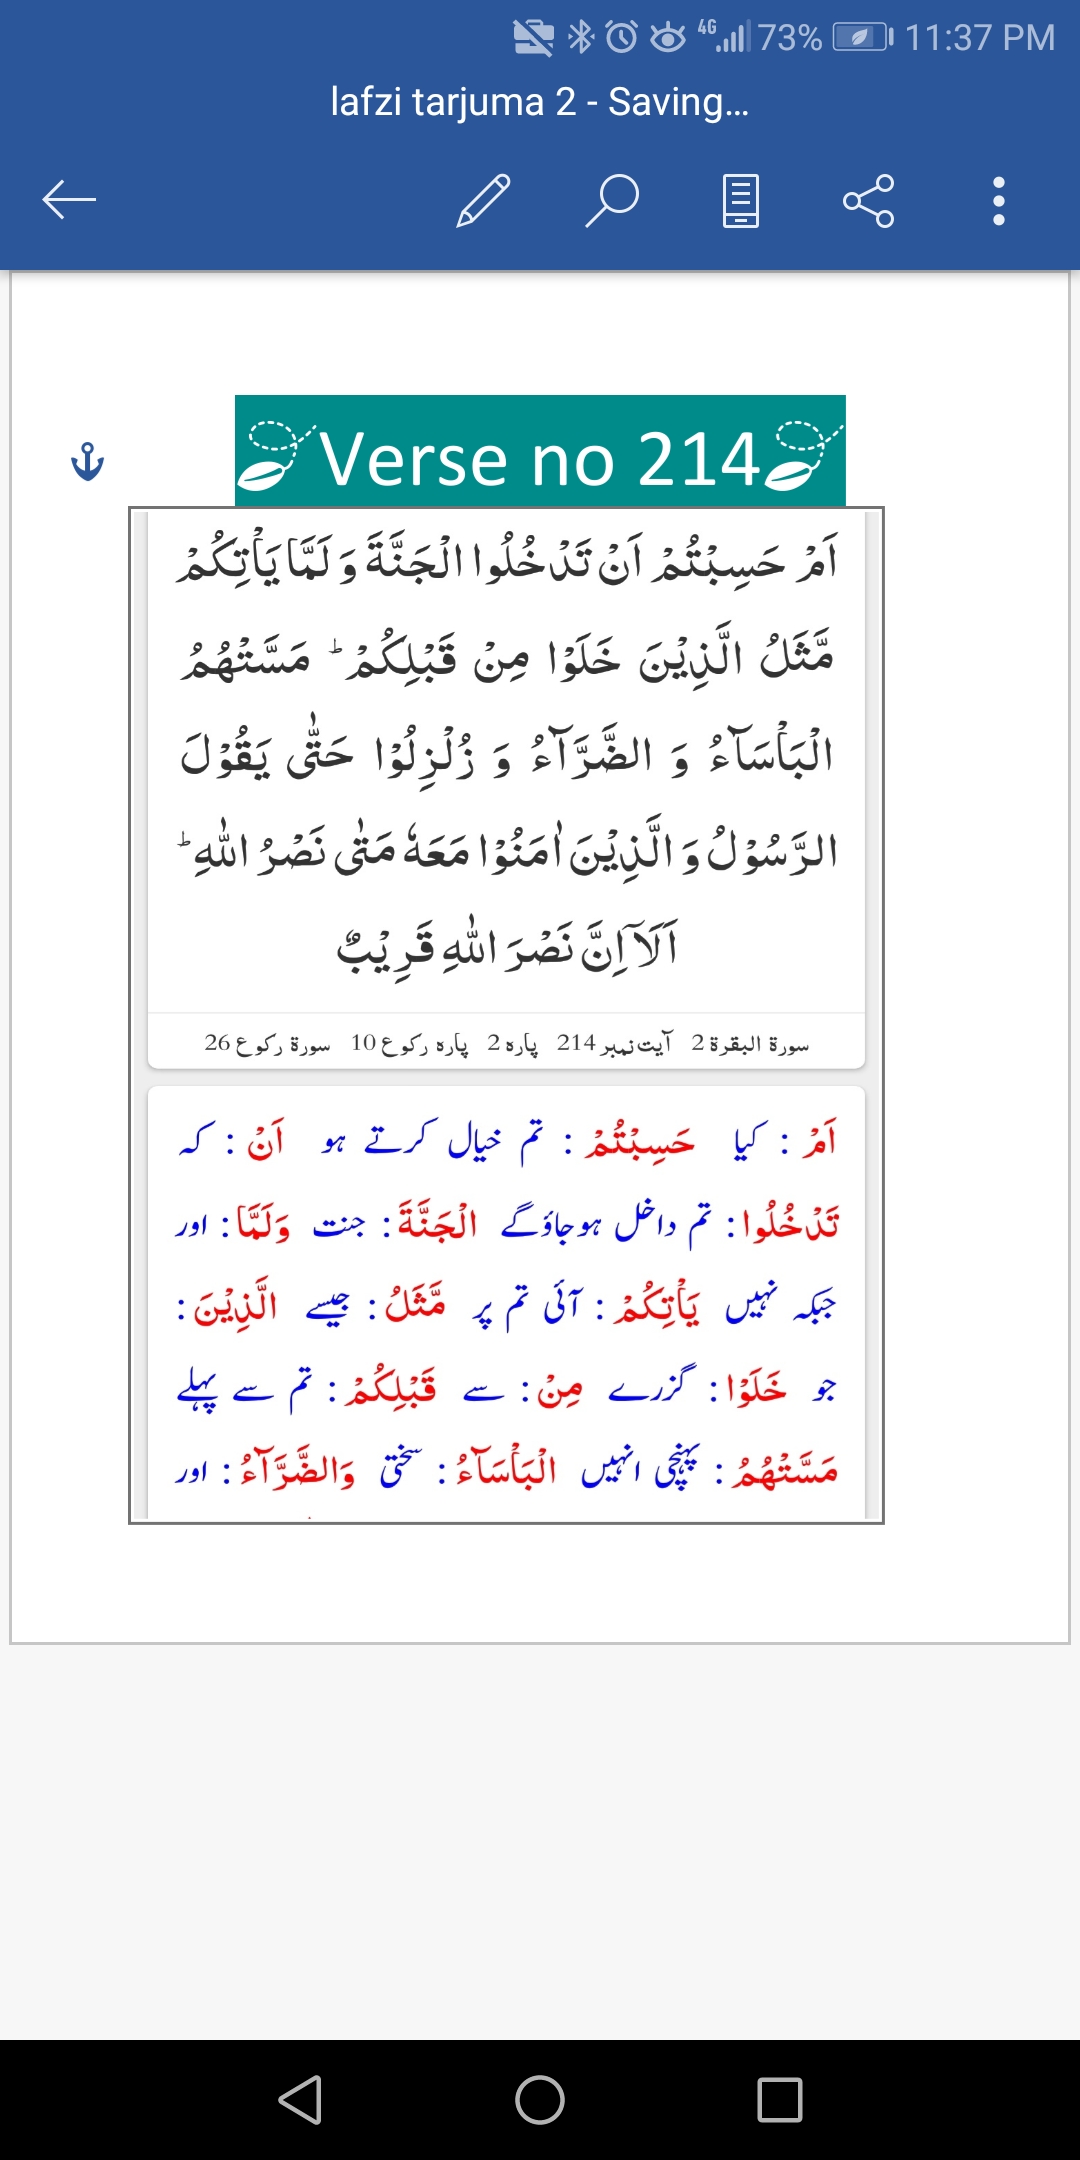 73% 11:37 PM
lafzi tarjuma 2 - Saving...
Verse no 214
اَمْ حَسِبْتُمْ اَنْ تَدْخُلُوا الْجَنَّةَ وَ لَمَّا یَاْتِكُمْ
مَّثَلُ الَّذِیْنَ خَلَوْا مِنْ قَبْلِكُمْ ؕ مَسَّتْهُمُ
الْبَاْسَآءُ وَ الضَّرَّآءُ وَ زُلْزِلُوْا حَتّٰى یَقُوْلَ
الرَّسُوْلُ وَ الَّذِیْنَ اٰمَنُوْا مَعَهٗ مَتٰى نَصْرُ اللّٰهِ ؕ
اَلَاۤ اِنَّ نَصْرَ اللّٰهِ قَرِیْبٌ
سورۃ البقرۃ 2 آیت نمبر 214 پارہ 2 پارہ رکوع 10 سورۃ رکوع 26
اَمْ : کیا حَسِبْتُمْ : تم خیال کرتے ہو اَنْ : کہ
تَدْخُلُوا : تم داخل ہوجاؤگے الْجَنَّةَ : جنت وَلَمَّا : اور
جبکہ نہیں یَاْتِكُمْ : آئی تم پر مَّثَلُ : جیسے الَّذِیْنَ :
جو خَلَوْا : گزرے مِنْ : سے قَبْلِكُمْ : تم سے پہلے
مَسَّتْهُمُ : پہنچی انہیں الْبَاْسَآءُ : سختی وَالضَّرَّآءُ : اور